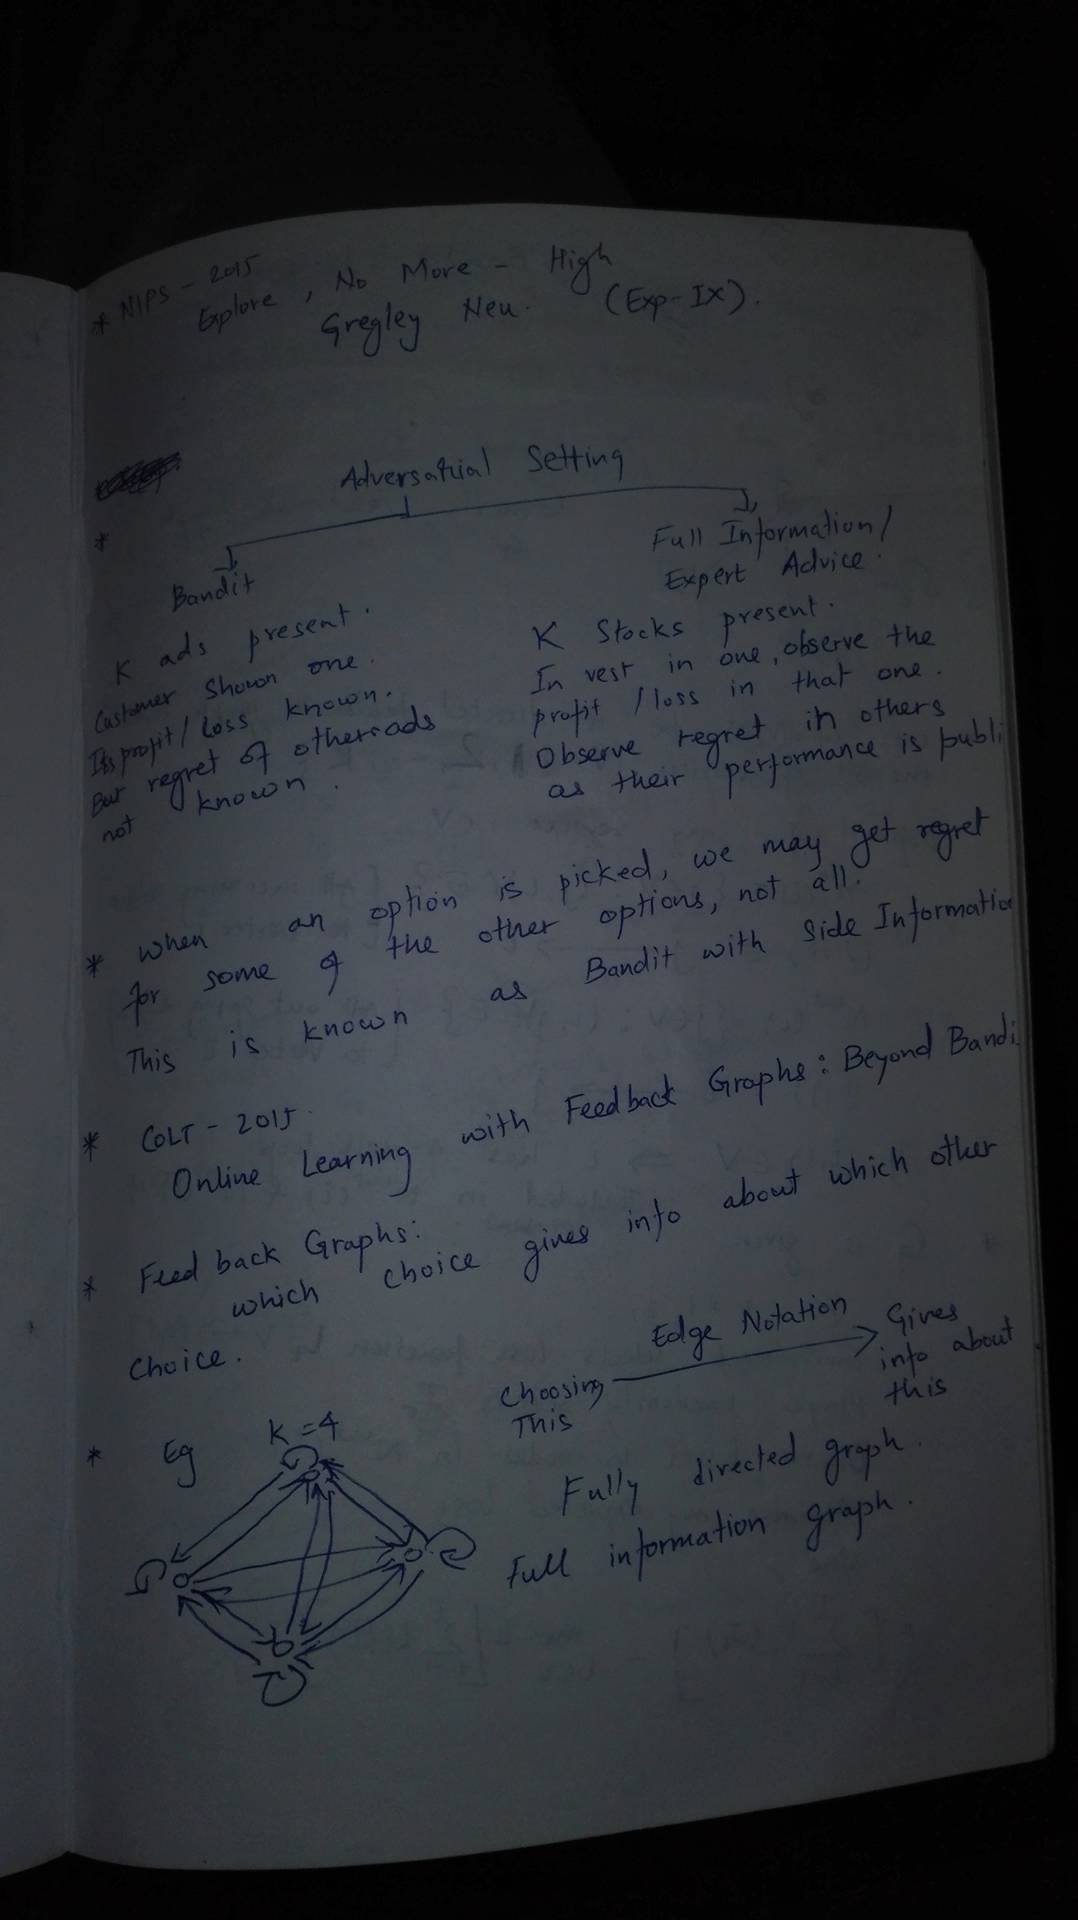 * NIPS - 2015
Explore, No More - High
Gregley Neu. (Exp-IX).
Adversatrial Setting
*
Bandit
K ads present.
Customer Shown one.
Its profit/loss known.
But regret of other ads
not known.
Full Information/
Expert Advice.
K Stocks present.
In vest in one, observe the
profit /loss in that one.
Observe regret in others
as their performance is publi
* When an option is picked, we may get regret
for some of the other options, not all.
This is known as Bandit with Side Informatio
* COLT - 2015.
Online Learning with Feedback Graphs: Beyond Bandi
* Feed back Graphs:
which choice gives info about which other
choice.
Edge Notation
Choosing
This
Gives
info about
this
* Eg K = 4
Fully directed graph.
Full information graph.